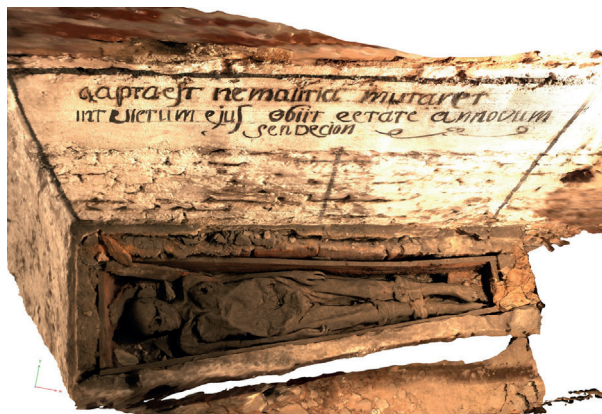 Raptaest ne malitia mutaret
intellerum ejus obiit eetate annovum
sendecion